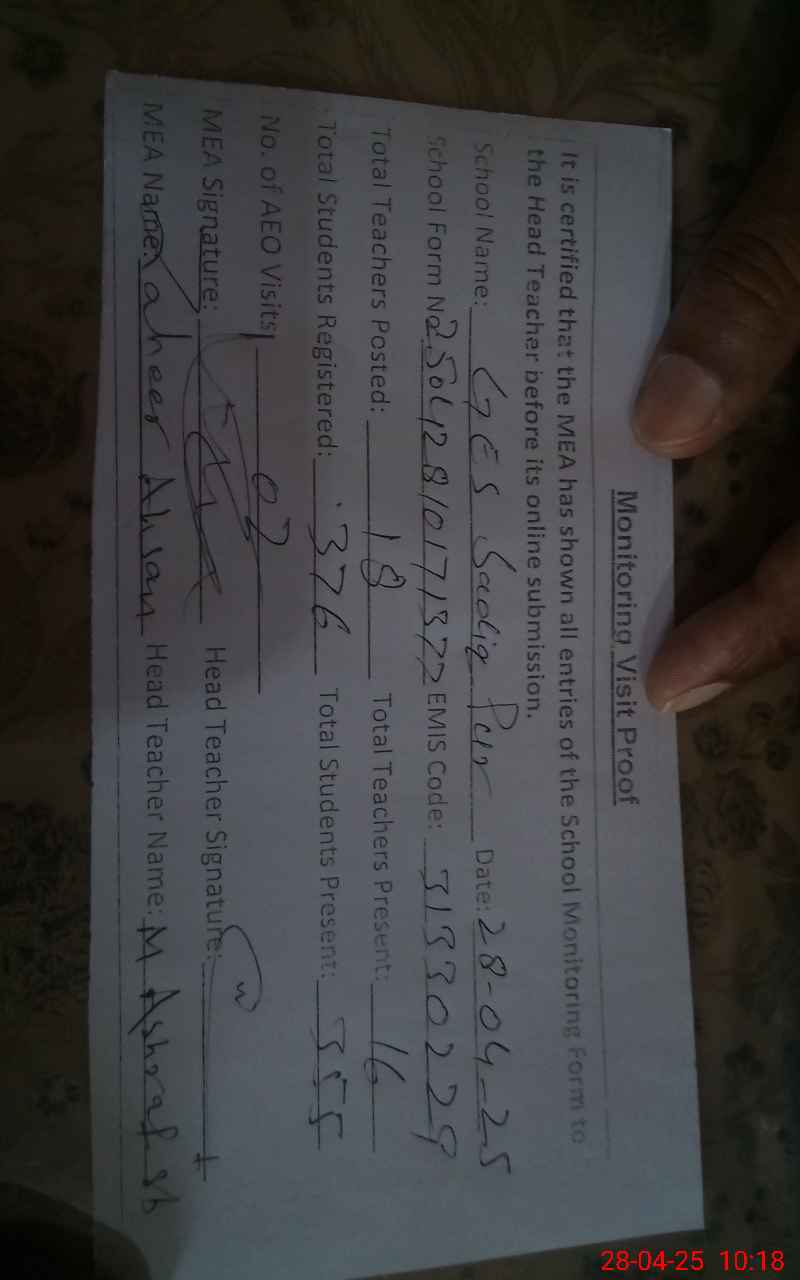 Monitoring Visit Proof
It is certified that the MEA has shown all entries of the School Monitoring Form to
the Head Teacher before its online submission.
School Name: GES Sadiq Pur Date: 28-04-25
School Form No. EMIS Code: 31330229
Total Teachers Posted: 18 Total Teachers Present: 16
Total Students Registered: 376 Total Students Present: 355
No. of AEO Visits 02
MEA Signature: Head Teacher Signature:
MEA Name: Zaheer Ahsan Head Teacher Name: M Ashraf sb
28-04-25 10:18